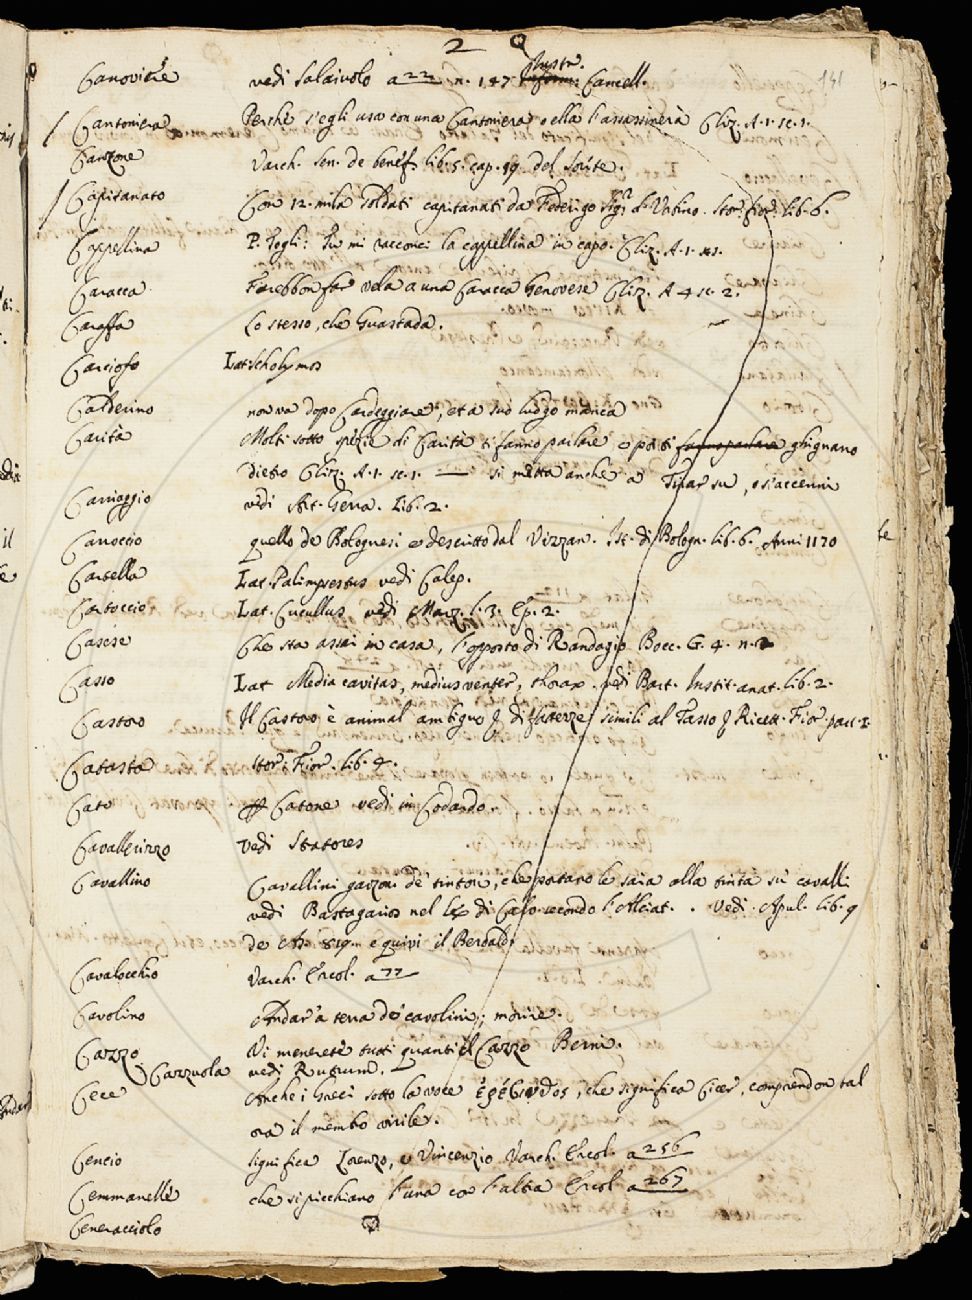 2
141
Canoviere vedi Salaiuolo a 22 n. 147 Cancell.
Cantoniera Perche s'egli usa con una Cantoniera o ella l'assassinerà Cliz. A. 1. sc. 1.
Canzone Varch. Sen. de benef. lib. 5. cap. 19. del Soute.
Capitanato Con 12. mila soldati capitanati da Federigo Sigr. d'Urbino. Stor. fior. lib. 6.
Cappellina P. Togli: Tu mi racconci la cappellina in capo. Cliz. A. 1. sc. 1.
Caracca Farebbon far vela a una Caracca Genovese Cliz. A 4 sc. 2.
Caraffa Lo stesso, che Guastada.
Carciofo Lat. Scholymos
Calderino non va dopo Cardeggiare, et a suo luogo manca
Carità Molti sotto spezie di Carità ti fanno parlare e poi ti fanno parlare ghignano
dietro Cliz. A. 1. sc. 1. — si metta anche a Tirar su, o s'accenni
Carriaggio vedi Art. Gerra. Lib. 2.
Carroccio quello de Bolognesi e descritto dal Vizzan. Ist. di Bologn. lib. 6. Anni 1170
Cartella Lat. Palimpsestus vedi Calep.
Cartoccio Lat. Cucullus vedi Marz. l. 3. Ep. 2.
Casese Che sta assai in casa, l'opposto di Randagio Bocc. G. 4. n. 2
Casso Lat Media cavitas, medius venter, thorax. vedi Bart. Instit. anat. lib. 2.
Castoro Il Castoro è animal ambiguo di fatezze simili al Tasso Ricett. Fior. par. 1.
Catasta Stor. Fior. lib. 4.
Cato Catone vedi in Codardo
Cavalleirizzo vedi Statores
Cavallino Cavallini garzoni de tintori, che portano le saia alla tinta su cavalli
vedi Bastagarios nel Lex di Calo. secondo l'Alciat. . vedi Apul. lib. 9
de As. 819. e quivi il Beroaldi
Cavalocchio Varch. Ercol. a 77
Cavolino Andar a terra de cavolini; morire.
Cazzo Vi menerete tutti quanti il Cazzo Berni.
Cazzuola vedi Rutrum.
Cece Anche i Greci sotto la voce ἐρέβινθος, che significa Cicer, comprendon tal
ora il membro virile.
Cencio significa Lorenzo, o Vincenzio Varch. Ercol. a 256
Cemmanelle che si picchiano l'una con l'altra Ercol a 267
Ceneracciolo